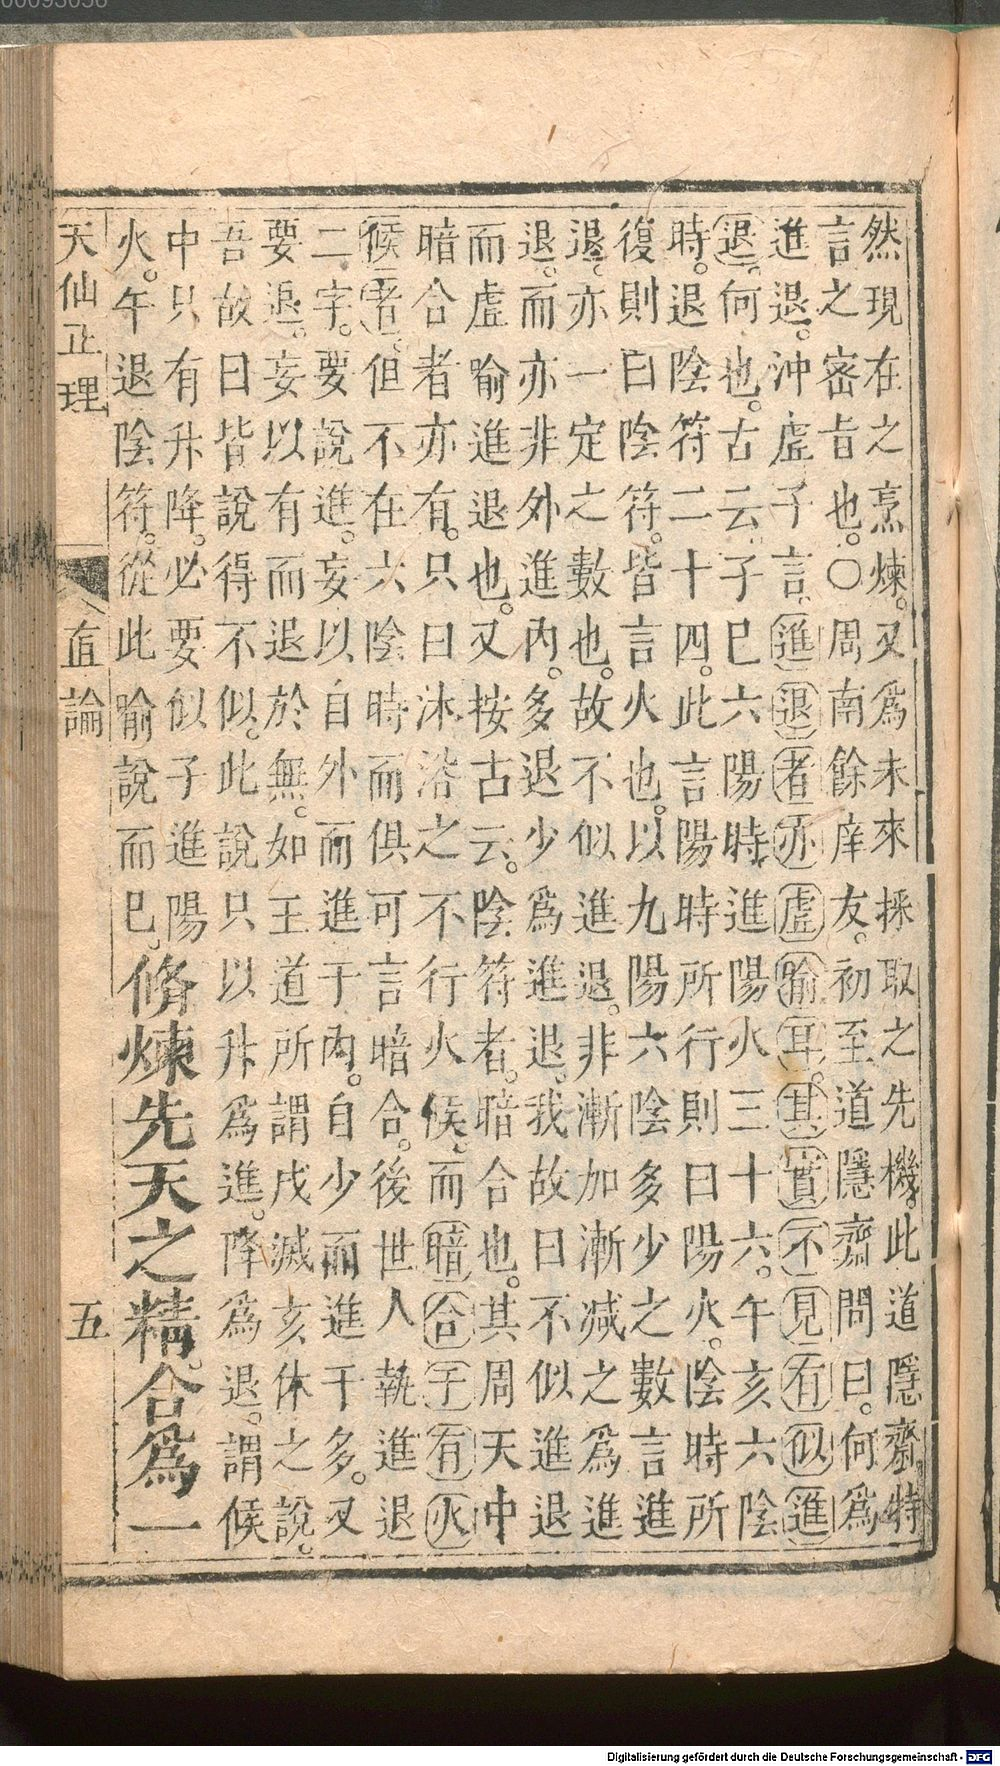 00093056
然現在之烹煉。又爲未來採取之先機。此道隱齋特
言之密旨也。〇周南餘庠友。初至道隱齋問曰。何爲
進退。沖虛子言。進退者亦虛喻耳。其實不見有似進
退。何也。古云。子巳六陽時進陽火三十六。午亥六陰
時。退陰符二十四。此言陽時所行則曰陽火。陰時所
復則曰陰符。皆言火也。以九陽六陰多少之數言進
退。亦一定之數也。故不似進退。非漸加漸減之爲進
退。而亦非外進內。多退少爲進退。我故曰不似進退
而虛喻進退也。又按古云。陰符者。暗合也。其周天中
暗合者亦有。只曰沐浴之不行火候。而暗合于有火
候者。但不在六陰時而俱可言暗合。後世人執進退
二字。要說進。妄以自外而進于內。自少而進于多。又
要退。妄以有而退於無。如王道所謂戌滅亥休之說。
吾故曰皆說得不似。此說只以升爲進。降爲退。謂候
中只有升降。必要似子進陽
火。午退陰符。從此喻說而巳。脩煉先天之精。合爲一
天仙正理 直論 五
Digitalisierung gefördert durch die Deutsche Forschungsgemeinschaft - DFG